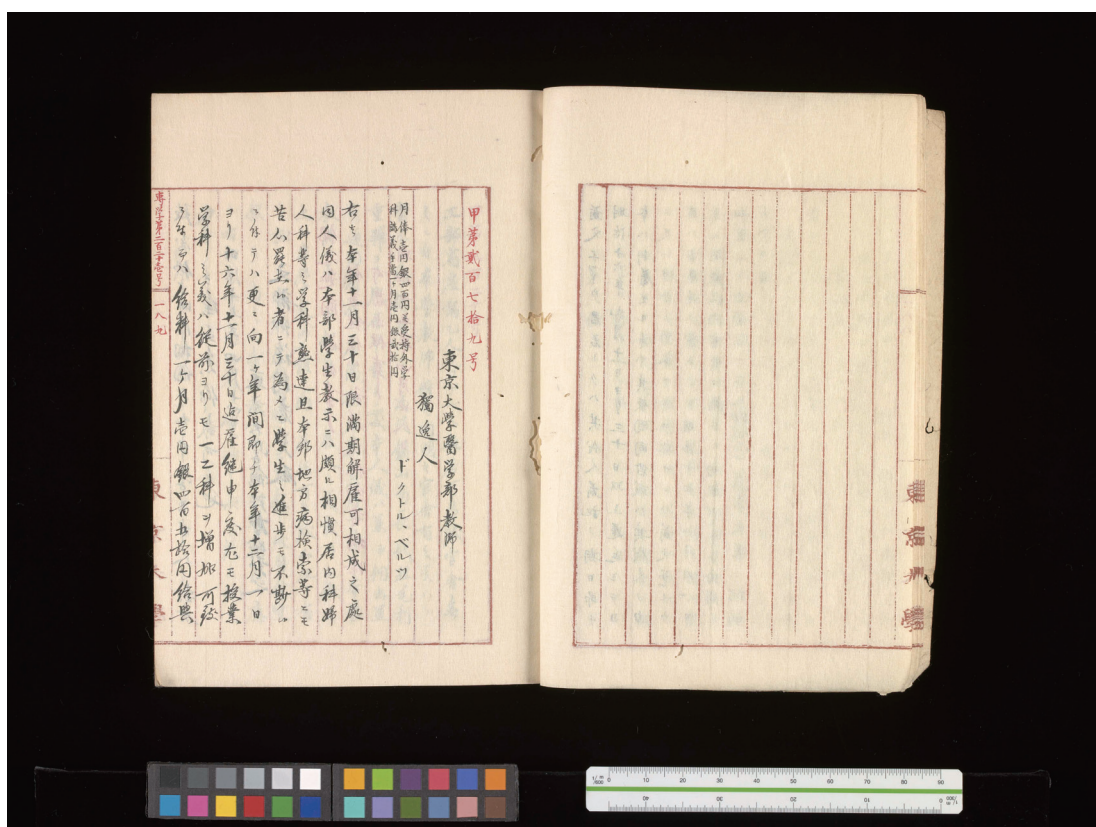 甲第貳百七拾九号
東京大学醫学部教師
獨逸人
ドクトル、ベルツ
月俸壱円銀四百円受持外学
科講義手當一ヶ月壱円銀貳拾円
右ハ本年十一月三十日限満期解雇可相成之處
同人儀ハ本部學生教示ニハ頗ル相慣居内科婦
人科等之学科熟達且本邦地方病検索等ニモ
苦心罷在候者ニテ為メニ學生之進歩モ不尠候
ニ付テハ更ニ向一ヶ年間即チ本年十二月一日
ヨリ十六年十一月三十日迠雇継申度尤モ授業
学科之義ハ従前ヨリモ一二科ヲ増加可致
ニ付テハ給料一ヶ月壱円銀四百五拾円給與
専学第二百二十壱号
一八九
東京大學
東京大學